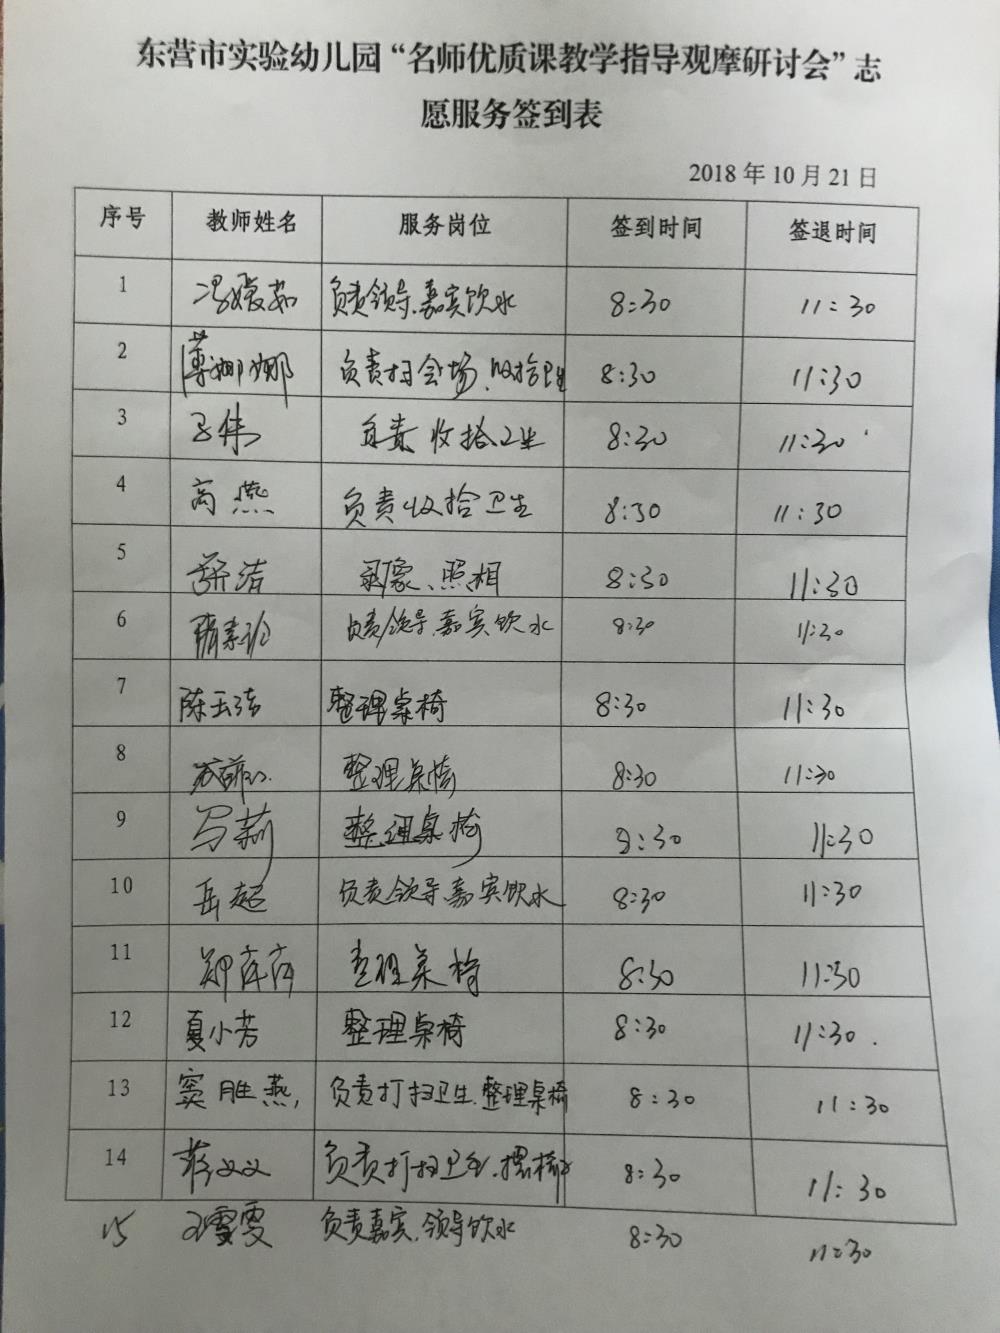 东营市实验幼儿园“名师优质课教学指导观摩研讨会”志
愿服务签到表
2018年10月21日
序号 教师姓名 服务岗位 签到时间 签退时间
1 冯媛茹 负责领导、嘉宾饮水 8:30 11:30
2 薄娜娜 负责扫会场、收拾卫生 8:30 11:30
3 伟 负责收拾卫生 8:30 11:30
4 高燕 负责收拾卫生 8:30 11:30
5 洁 录像、照相 8:30 11:30
6 负责领导、嘉宾饮水 8:30 11:30
7 陈玉洁 整理桌椅 8:30 11:30
8 整理桌椅 8:30 11:30
9 马莉 整理桌椅 8:30 11:30
10 岳超 负责领导、嘉宾饮水 8:30 11:30
11 郑萍萍 整理桌椅 8:30 11:30
12 夏小芳 整理桌椅 8:30 11:30.
13 窦胜燕 负责打扫卫生、整理桌椅 8:30 11:30
14 蒋义义 负责打扫卫生、摆椅子 8:30 11:30
15 王雪雯 负责嘉宾、领导饮水 8:30 11:30